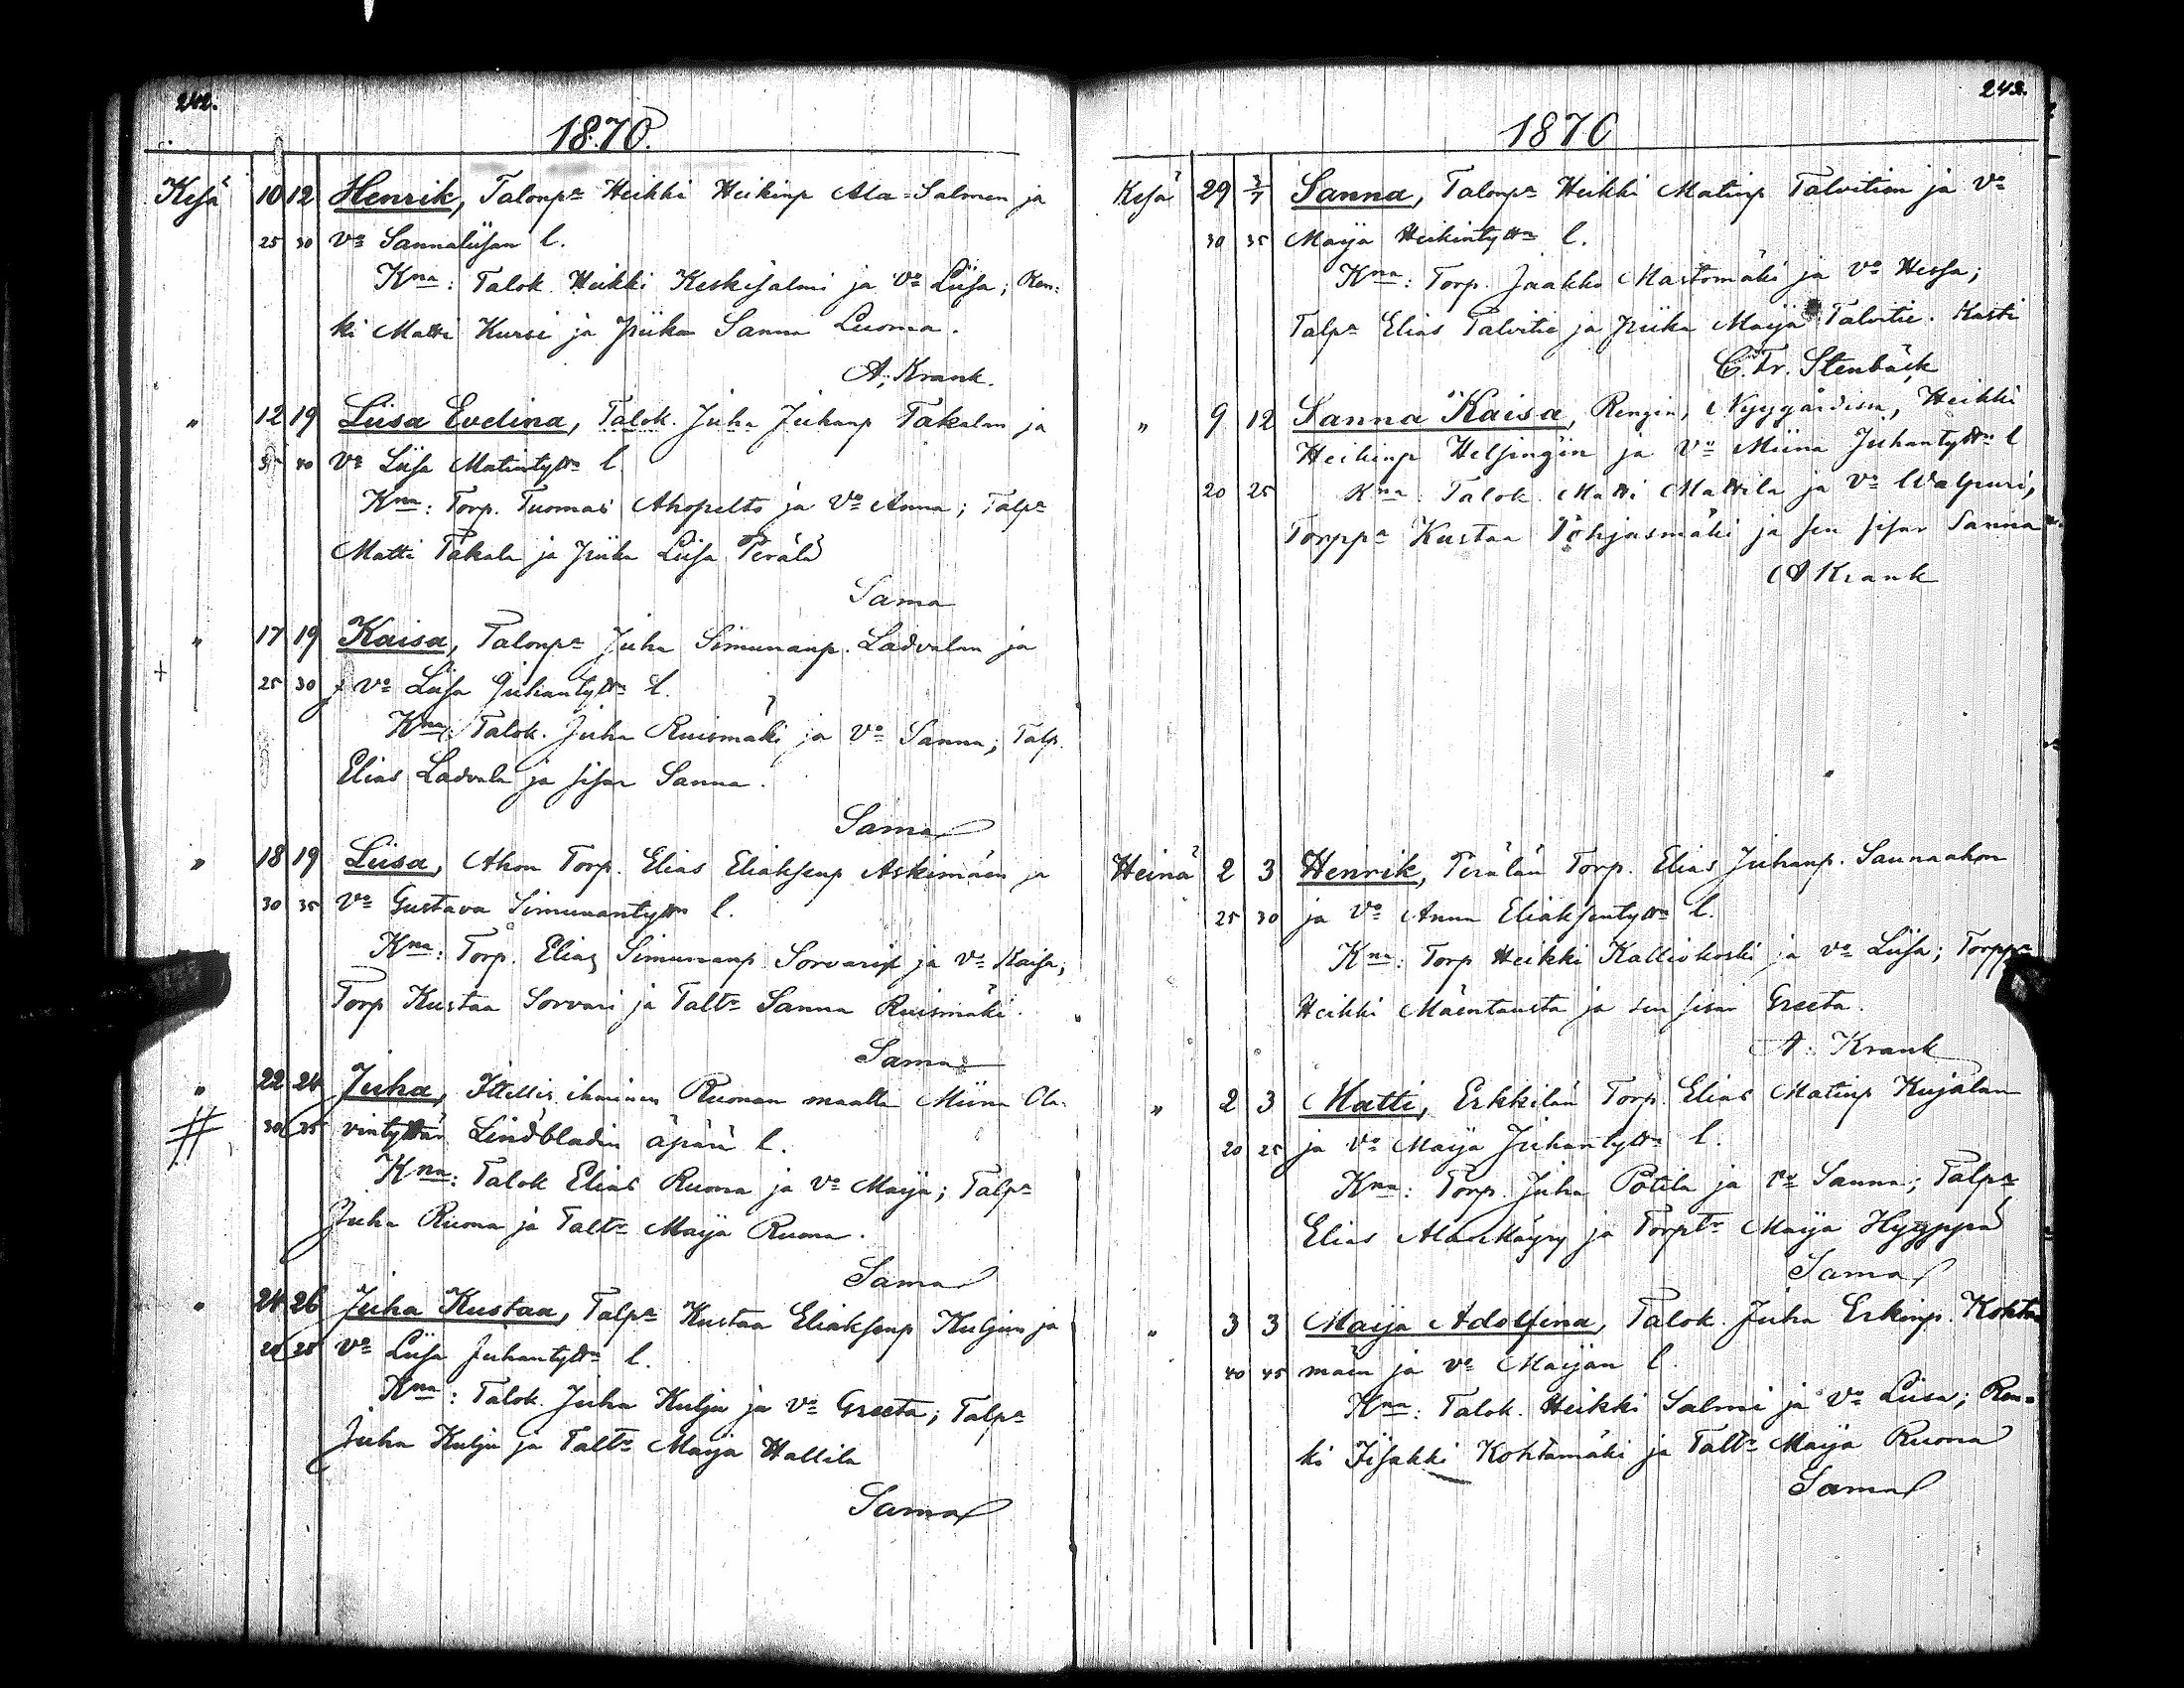 242.
1870.
Kesä 10 12 Henrik, Talonpa Heikki Heikinp Ala=Salmen ja
25 30 Vo Sannaliisan l.
Kna: Talok. Heikki Keskisalmi ja Vo Liisa; Ren=
ki Matti Kursi ja Piika Sanna Luoma.
A. Krank.
" 12 19 Liisa Evelina, Talok. Juha Juhanp Takalan ja
35 40 Vo Liisa Matintyttn l.
Kna: Torp. Tuomas Ahopelto ja Vo Anna; Talpa
Matti Takala ja Piika Liisa Perälä
Sama
" 17 19 Kaisa, Talonpa Juha Simunanp. Ladvalan ja
+ 25 30 Vo Liisa Juhantyttn l.
Kna: Talok. Juha Ruismäki ja Vo Sanna; Talp.
Elias Ladvala ja sisar Sanna.
Sama
" 18 19 Liisa, Ahon Torp. Elias Eliaksenp Askimäen ja
30 35 Vo Gustava Simunantyttn l.
Kna: Torp. Elias Simunanp Sorvari ja Vo Kaisa;
Torp Kustaa Sorvari ja Taltr Sanna Ruismäki.
Sama
" 22 24 Juha, Ittellis. ihminen Ruonan maalla Miina Ola=
# 30 35 vintyttän Lindbladin äpärä l.
Kna: Talok Elias Ruona ja Vo Maija; Talpa
Juha Ruona ja Taltr Maija Ruona.
Sama
" 24 26 Juha Kustaa, Talpa Kustaa Eliaksenp Kuljun ja
20 25 Vo Liisa Juhantyttn l.
Kna: Talok. Juha Kulju ja Vo Greeta; Talpa
Juha Kulju ja Taltr Maija Hallila
Sama
243.
1870
Kesä 29 3/7 Sanna, Talonpa Heikki Matinp Talvitien ja Vo
30 35 Maija Heikintyttn l.
Kna: Torp. Jaakko Mastomäki ja Vo Hessa;
Talpa Elias Talvitie ja Piika Maija Talvitie. Kasti
C. Fr. Stenbäck
" 9 12 Sanna Kaisa, Rengin, Nyygårdissa, Heikki
Heikinp Helsingin ja Vo Miina Juhantyttn l
20 25 Kna: Talok. Matti Mattila ja Vo Walpuri,
Torppa Kustaa Pohjasmäki ja sen sisar Sanna
A Krank
Heinä 2 3 Henrik, Perälän Torp. Elias Juhanp. Saunaahon
25 30 ja Vo Anna Eliaksentyttn l.
Kna: Torp Heikki Kalliokoski ja Vo Liisa; Torppa
Heikki Mäentausta ja sen sisar Greeta.
A. Krank
" 2 3 Matti, Erkkilän Torp. Elias Matinp Kujalan
20 25 ja Vo Maija Juhantyttn l.
Kna: Torp. Juha Potila ja Vo Sanna; Talpa
Elias AlaMäyry ja Torptr Maija Hyyppä
Sama
" 3 3 Maija Adolfina, Talok. Juha Erkinp. Kohta
40 45 mäen ja Vo Maijan l.
Kna: Talok. Heikki Salmi ja Vo Liisa; Ren=
ki Iisakki Kohtamäki ja Taltr Maija Ruona
Sama